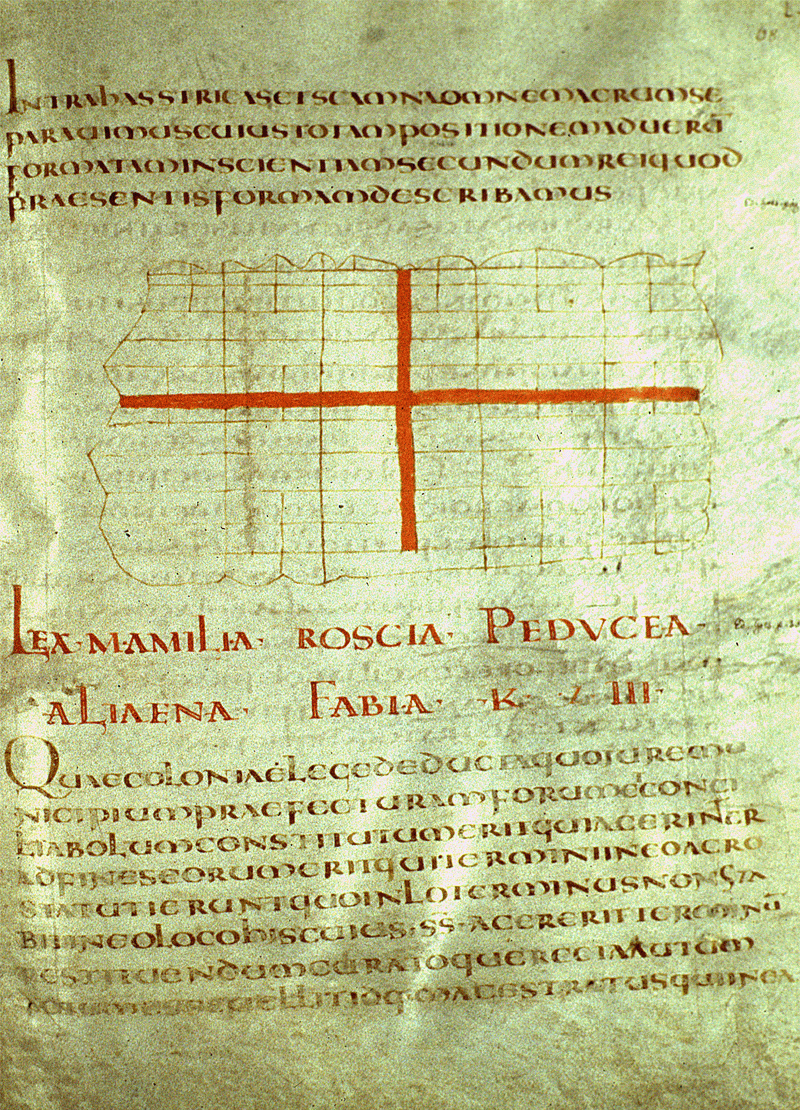 INTRAHASSTRICASETSCAMNAOMNEMAGRUMSE
PARAUIMUSCUIUSTOTAMPOSITIONEMADUERā
FORMATAMINSCIENTIAMSECUNDUMREIQUOD
PRAESENTISFORMAMDESCRIBAMUS
LEX·MAMILIA· ROSCIA· PEDVCEA·
ALIAENA· FABIA· ·K· III·
QUAECOLONIAELEGEDEDUCTAQUOTUREMU
NICIPIUMPRAEFECTURAMFORUMECONCI
LIABOLUMCONSTITUTUMERITQUIAGERINTER
ADFINESEORUMERITQUITERMINIINEOAGRO
STATUTIERUNTQUOINLOTERMINUSNONSTA
BITINEOLOCOHISCUIUS·SS·AGERERITTERMINŪ
RESTITUENDUMCURATOQUERECTAAUTUM
UELLITIDQ·MAGESTRATUSQUIINEA